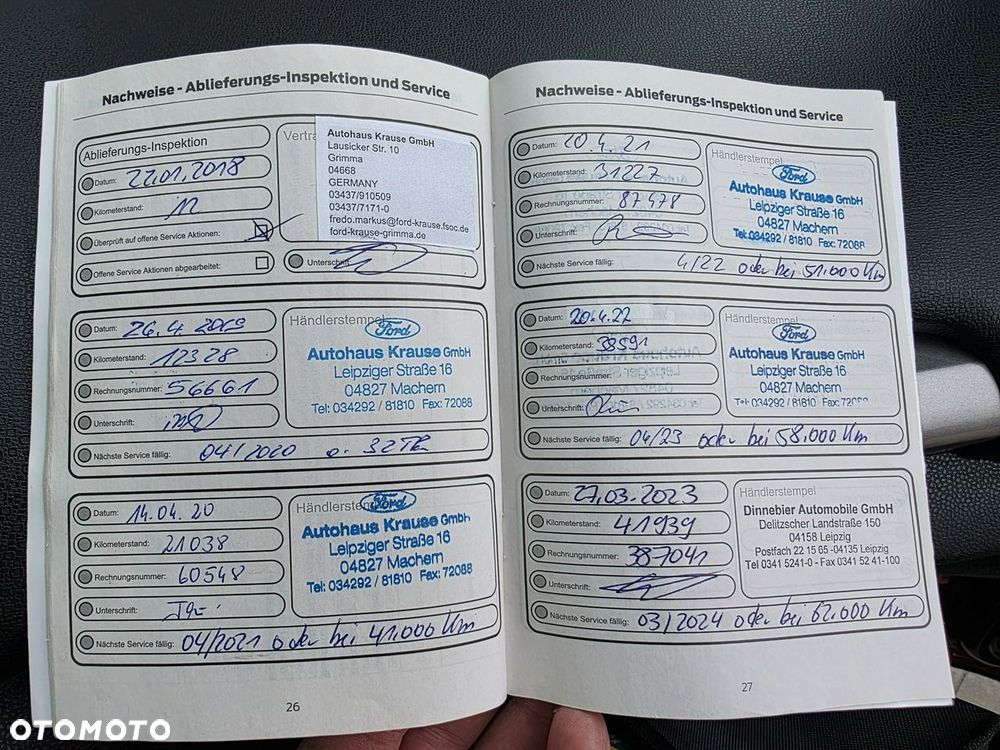 Nachweise - Ablieferungs-Inspektion und Service
Ablieferungs-Inspektion
Datum: 22.01.2018
Kilometerstand: 12
Überprüft auf offene Service Aktionen:
Offene Service Aktionen abgearbeitet:
Vertra
Autohaus Krause GmbH
Lausicker Str. 10
Grimma
04668
GERMANY
03437/910509
03437/7171-0
fredo.markus@ford-krause.fsoc.de
ford-krause-grimma.de
Unterschrift:
Datum: 26.4 2019
Kilometerstand: 12328
Rechnungsnummer: 56661
Unterschrift:
Händlerstempel
Ford
Autohaus Krause GmbH
Leipziger Straße 16
04827 Machern
Tel: 034292 / 81810 Fax: 72088
Nächste Service fällig: 04/2020 o. 32T
Datum: 14.04.20
Kilometerstand: 21038
Rechnungsnummer: 60548
Unterschrift:
Händlerstempel
Ford
Autohaus Krause GmbH
Leipziger Straße 16
04827 Machern
Tel: 034292 / 81810 Fax: 72088
Nächste Service fällig: 04/2021 oder bei 41.000 Km
26
Nachweise - Ablieferungs-Inspektion und Service
Datum: 20.4.21
Kilometerstand: 31227
Rechnungsnummer: 87478
Unterschrift:
Händlerstempel
Ford
Autohaus Krause GmbH
Leipziger Straße 16
04827 Machern
Tel: 034292 / 81810 Fax: 72088
Nächste Service fällig: 4/22 oder bei 51.000 Km
Datum: 20.4.22
Kilometerstand: 38591
Rechnungsnummer:
Unterschrift:
Händlerstempel
Ford
Autohaus Krause GmbH
Leipziger Straße 16
04827 Machern
Tel: 034292 / 81810 Fax: 72088
Nächste Service fällig: 04/23 oder bei 58.000 Km
Datum: 27.03.2023
Kilometerstand: 41939
Rechnungsnummer: 387041
Unterschrift:
Händlerstempel
Dinnebier Automobile GmbH
Delitzscher Landstraße 150
04158 Leipzig
Postfach 22 15 65 -04135 Leipzig
Tel 0341 5241-0 - Fax 0341 52 41-100
Nächste Service fällig: 03/2024 oder bei 62.000 Km
27
OTOMOTO